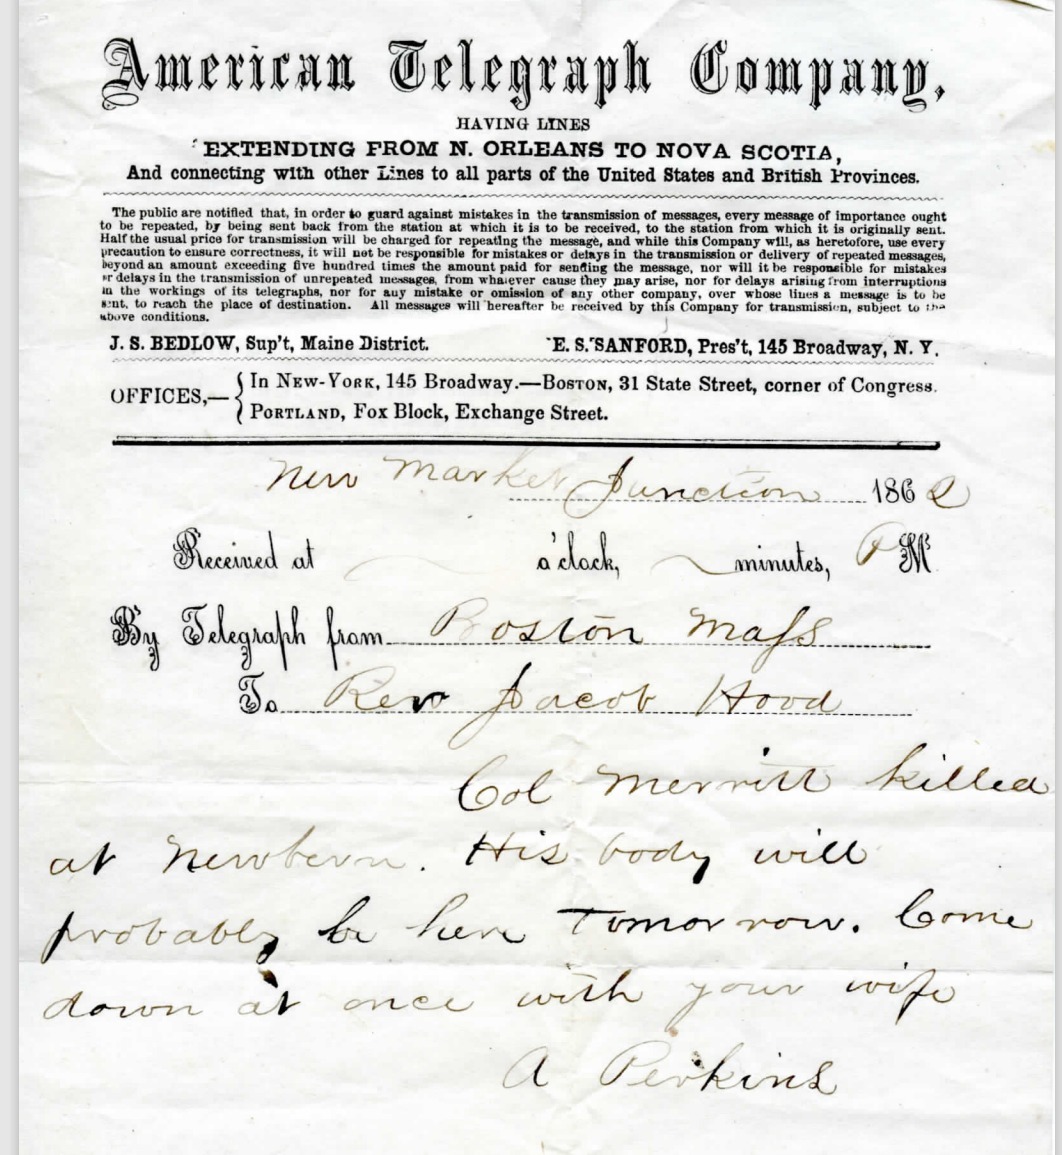 American Telegraph Company,
HAVING LINES
EXTENDING FROM N. ORLEANS TO NOVA SCOTIA,
And connecting with other Lines to all parts of the United States and British Provinces.
The public are notified that, in order to guard against mistakes in the transmission of messages, every message of importance ought
to be repeated, by being sent back from the station at which it is to be received, to the station from which it is originally sent.
Half the usual price for transmission will be charged for repeating the message, and while this Company will, as heretofore, use every
precaution to ensure correctness, it will not be responsible for mistakes or delays in the transmission or delivery of repeated messages,
beyond an amount exceeding five hundred times the amount paid for sending the message, nor will it be responsible for mistakes
or delays in the transmission of unrepeated messages, from whatever cause they may arise, nor for delays arising from interruptions
in the workings of its telegraphs, nor for any mistake or omission of any other company, over whose lines a message is to be
sent, to reach the place of destination. All messages will hereafter be received by this Company for transmission, subject to the
above conditions.
J. S. BEDLOW, Sup't, Maine District. E. S. SANFORD, Pres't, 145 Broadway, N. Y.
OFFICES,— { In NEW-YORK, 145 Broadway.—BOSTON, 31 State Street, corner of Congress.
PORTLAND, Fox Block, Exchange Street.
New Market Junction 1862
Received at o'clock, minutes, P M
By Telegraph from Boston Mass
To Rev Jacob Hood
Col Merritt killed
at Newbern. His body will
probably be here tomorrow. Come
down at once with your wife
A Perkins